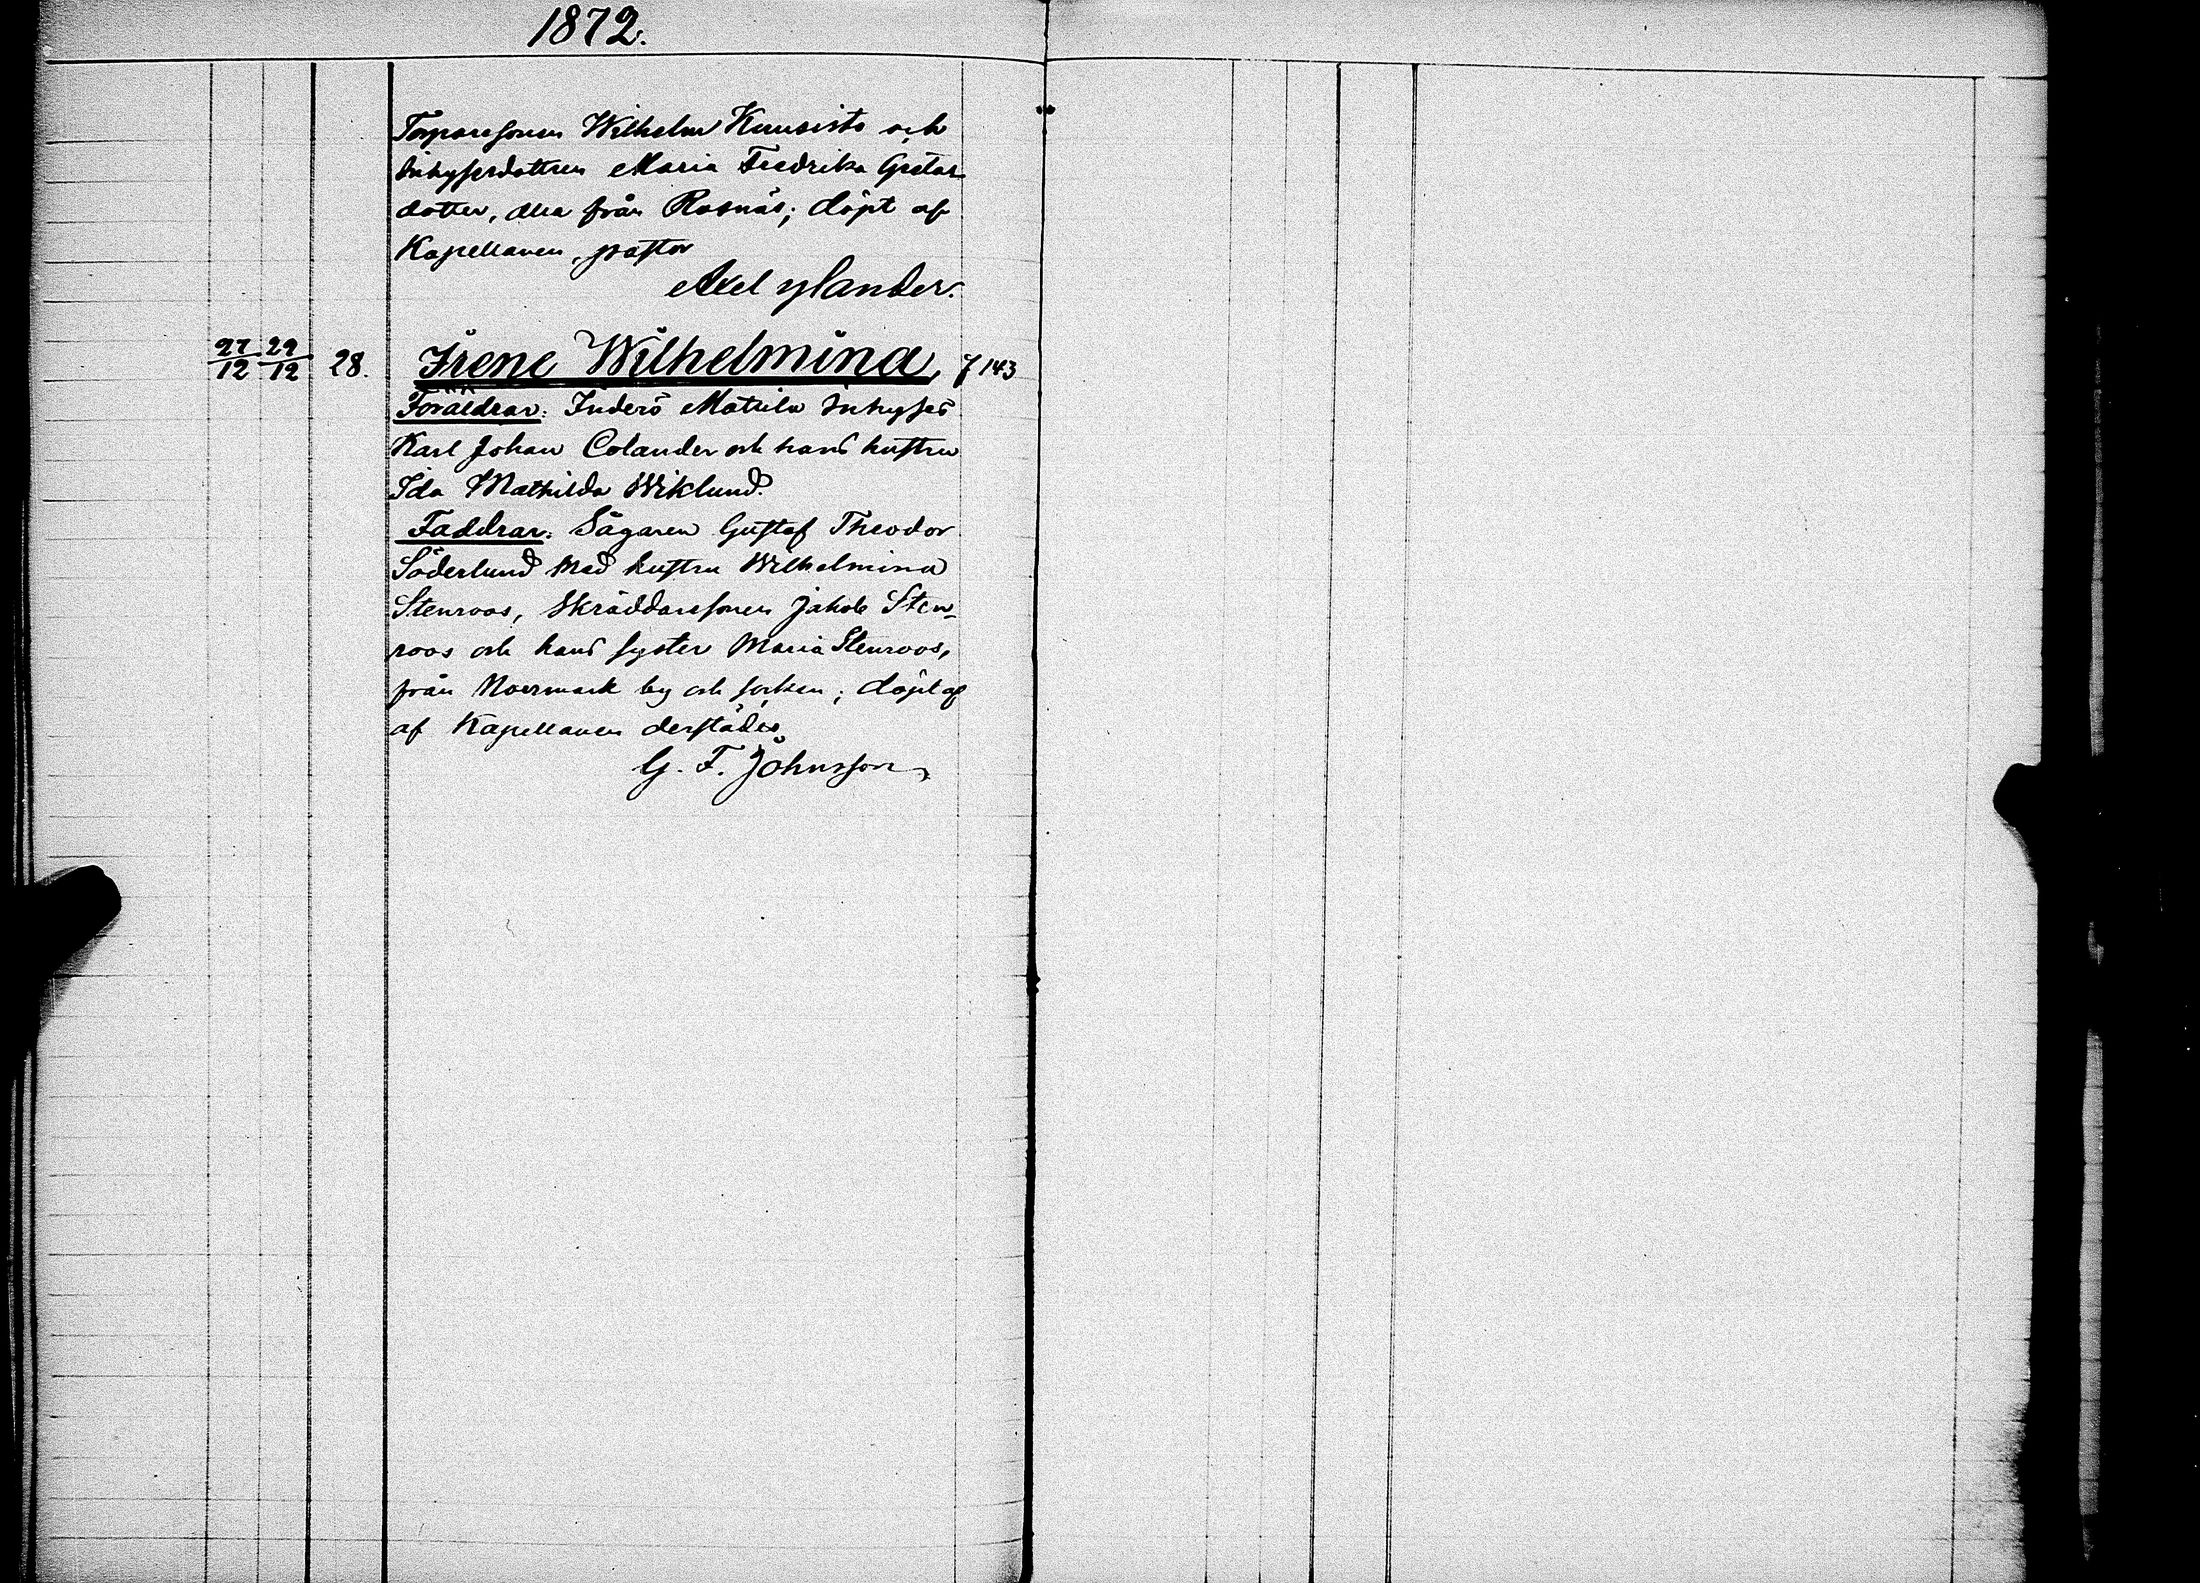 1872.
Torparesonen Wilhelm Kuusisto och
Inhysesdottren Maria Fredrika Gustafs-
dotter, alla från Rosnäs; döpt af
Kapellanen, pastor
Axel Ylander.
27/12 29/12 28. Irene Wilhelmina, 7 143
Föräldrar: Inderö Mattila Inhyses
Karl Johan Colander och hans hustru
Ida Mathilda Wiklund.
Faddrar: Sågaren Gustaf Theodor
Söderlund med hustru Wilhelmina
Stenroos, Skräddaresonen Jakob Sten-
roos och hans syster Maria Stenroos,
från Norrmark by och socken; döpt af
af Kapellanen derstädes
G. F. Johnsson